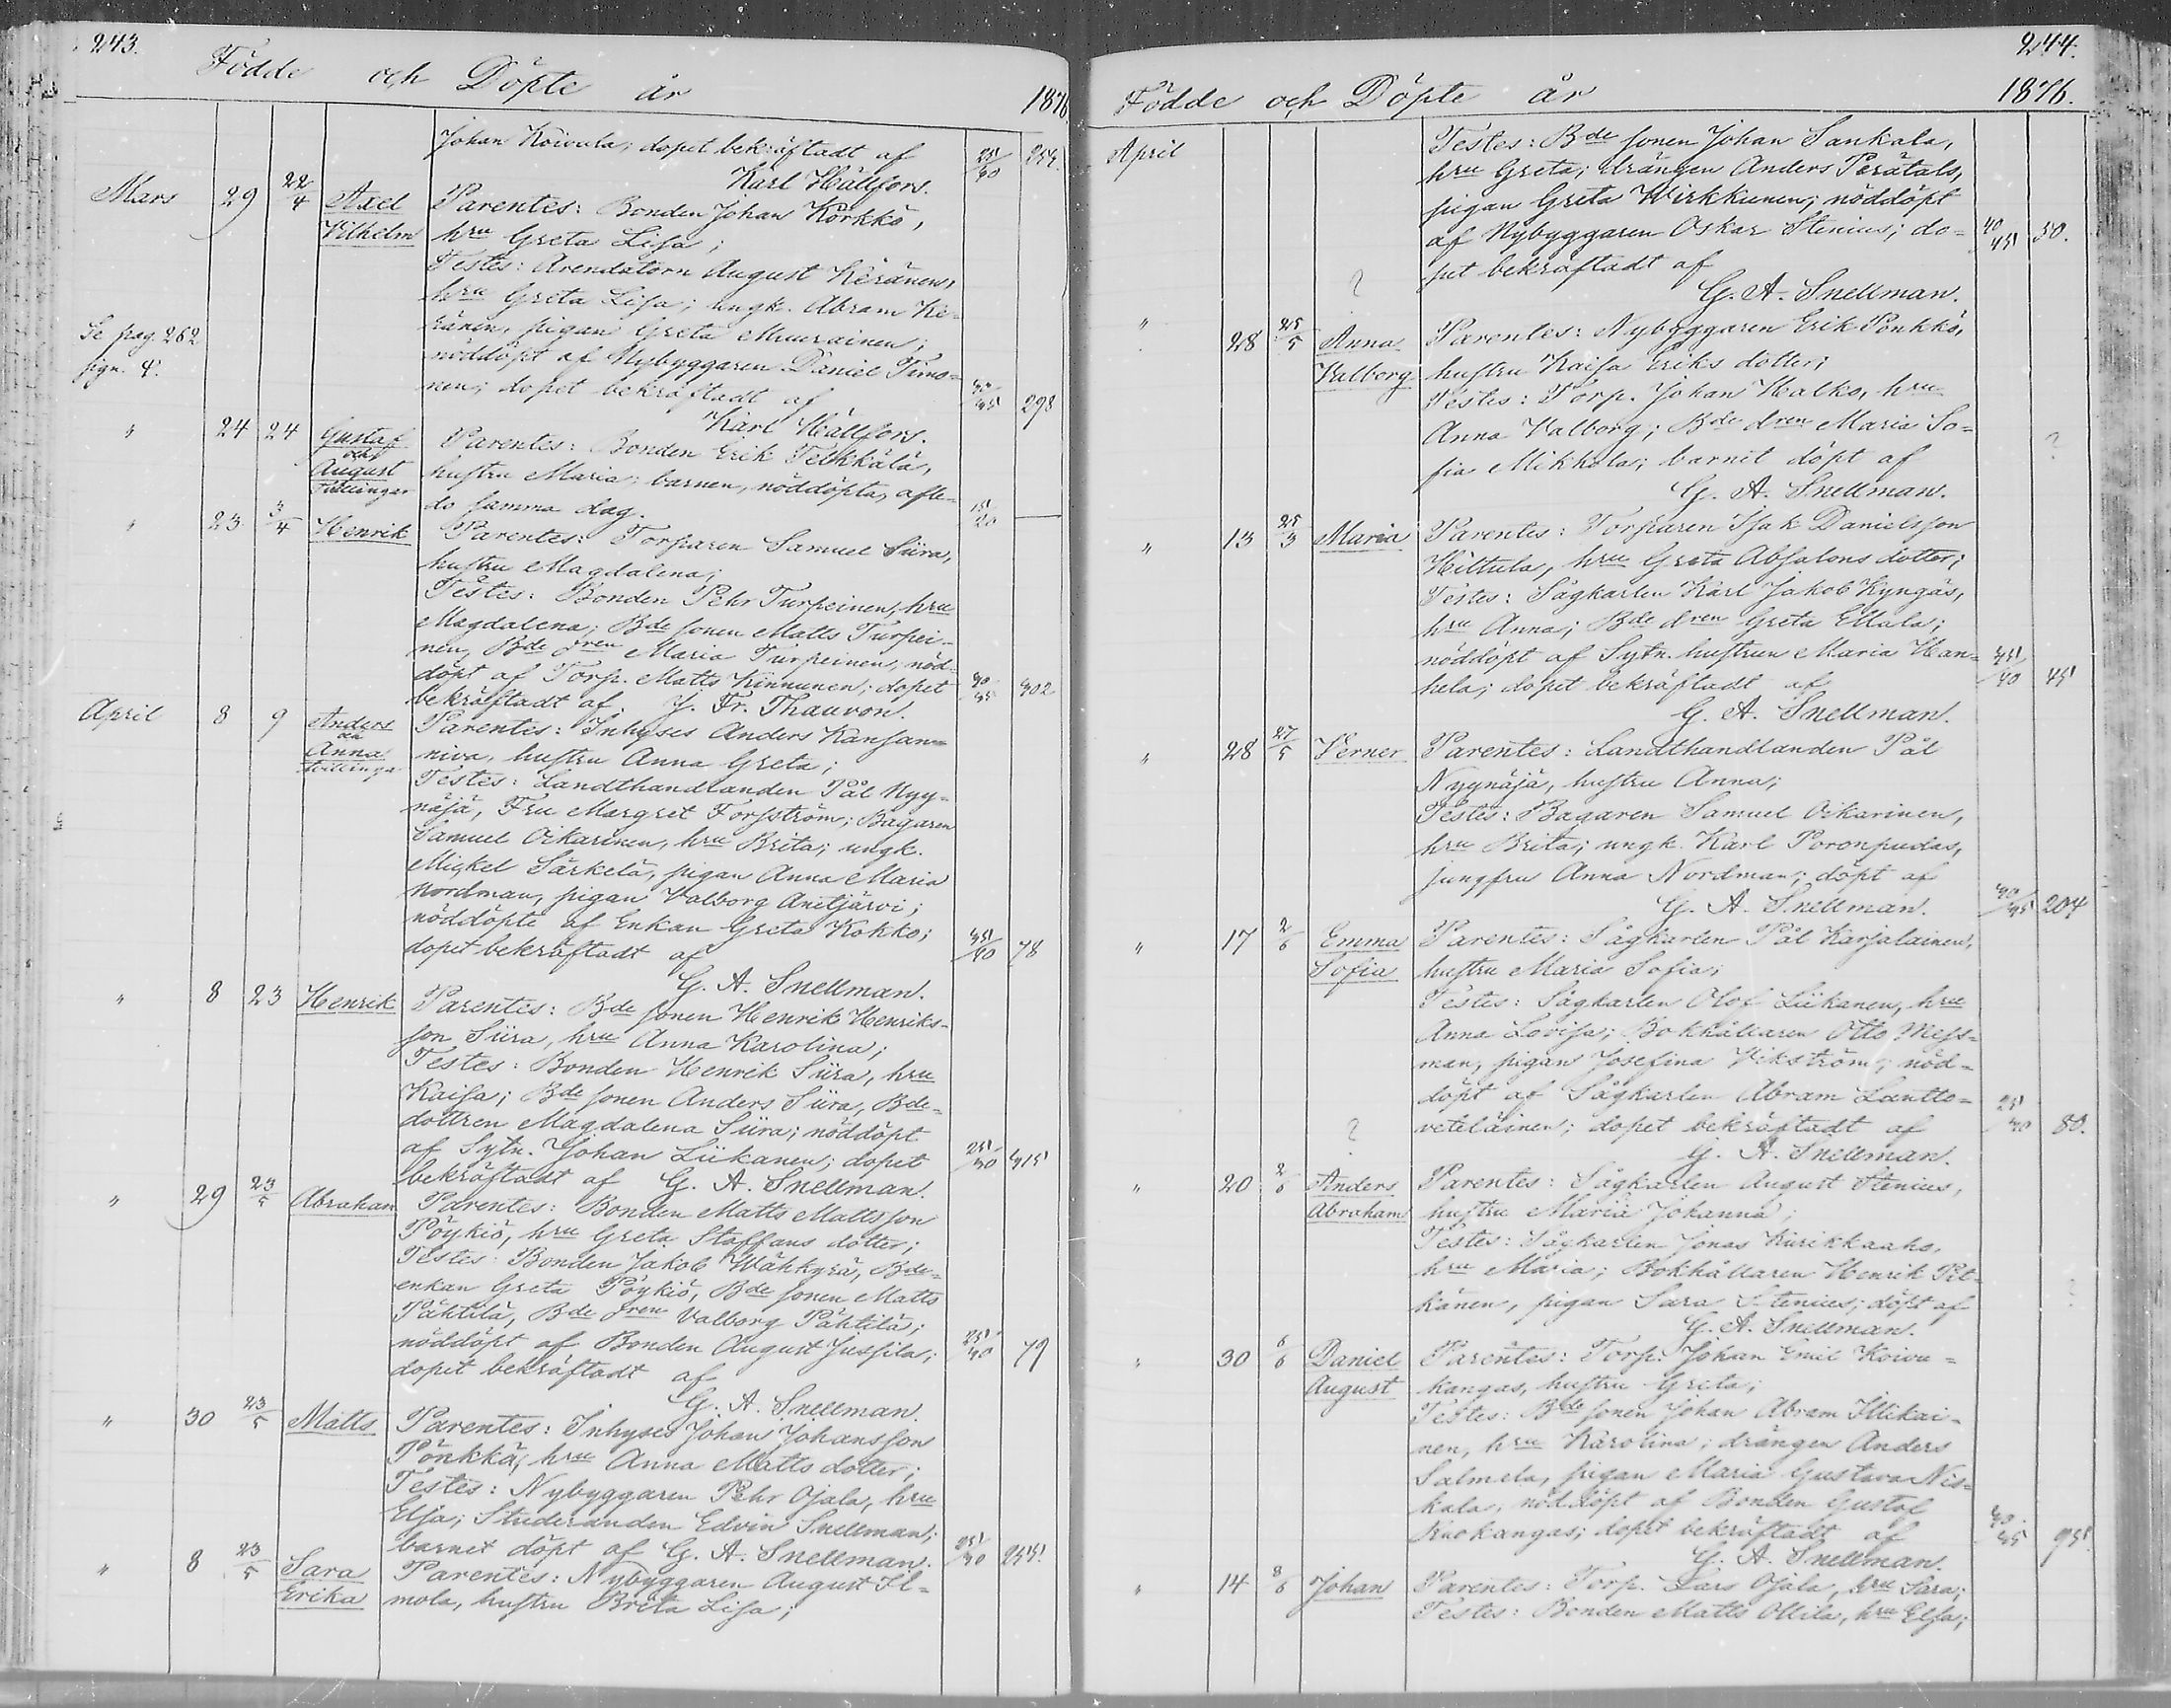 243.
Födde och Döpte år 1876.
Johan Koivula; dopet bekräftadt af 25/30 254.
Karl Hällfors.
Mars 29 22/4 Axel Parentes: Bonden Johan Körkkö,
Vilhelm hru Greta Lisa;
Testes: Arendatorn August Keränen,
hru Greta Lisa; ungk. Abram Ke-
Se pag. 262 ränen, pigan Greta Muurainen;
sign. 4. nöddöpt af Nybyggaren Daniel Timo-
nen; dopet bekräftadt af 298
Karl Hällfors.
" 24 24 Gustaf Parentes: Bonden Erik Teikkälä,
och
August hustru Maria; barnen, nöddöpta, afle-
tvillingar do samma dag. 15/20
" 23 3/4 Henrik Parentes: Torparen Samuel Siira,
hustru Magdalena;
Testes: Bonden Pehr Turpeinen, hru
Magdalena; Bde sonen Matts Turpei-
nen, Bde dren Maria Turpeinen, nöd-
döpt af Torp. Matts Kinnunen; dopet 302
bekräftadt af J. Fr. Thauvon.
April 8 9 Anders Parentes: Inhyses Anders Kansan-
och
Anna niva, hustru Anna Greta;
tvillingar Testes: Landthandlanden Pål Nyy-
näjä, Fru Margret Forsström; Bagaren
Samuel Oikarinen, hru Brita; ungk.
Mickel Särkelä, pigan Anna Maria
Nordman, pigan Valborg Anetjärvi;
nöddöpte af Enkan Greta Kokko;
dopet bekräftadt af 35/40 78
G. A. Snellman.
" 8 23 Henrik Parentes: Bde sonen Henrik Henriks-
son Siira, hru Anna Karolina;
Testes: Bonden Henrik Siira, hru
Kaisa; Bde sonen Anders Siira, Bde-
dottren Magdalena Siira; nöddöpt
af Sytn. Johan Liikanen; dopet 25/30 315
bekräftadt af G. A. Snellman.
" 29 23/5 Abraham Parentes: Bonden Matts Mattsson
Pöykiö, hru Greta Staffans dotter;
Testes: Bonden Jakob Wähkyrä, Bde-
enkan Greta Pöykiö, Bde sonen Matts
Pähtilä, Bde dren Valborg Pähtilä;
nöddöpt af Bonden August Jussila; 79
dopet bekräftadt af
G. A. Snellman.
" 30 23/5 Matts Parentes: Inhyses Johan Johansson
Pönkkä, hru Anna Matts dotter;
Testes: Nybyggaren Pehr Ojala, hru
Elsa; Studeranden Edvin Snellman;
barnet döpt af G. A. Snellman. 25/30 255.
" 8 23/5 Sara Parentes: Nybyggaren August Il-
Erika mola, hustru Brita Lisa;
244.
Födde och Döpte år 1876.
April Testes: Bde sonen Johan Sankala,
hru Greta; drängen Anders Perätalo,
pigan Greta Wirkkunen; nöddöpt
af Nybyggaren Oskar Stenius; do- 40/45 50.
pet bekräftadt af
? G. A. Snellman.
" 28 25/5 Anna Parentes: Nybyggaren Erik Pönkkö,
Valborg hustru Kaisa Eriks dotter;
Testes: Torp. Johan Halko, hru
Anna Valborg; Bde dren Maria So-
fia Mikkola; barnet döpt af ?
G. A. Snellman.
" 13 25/3 Maria Parentes: Torparen Isak Danielsson
Hiltula, hru Greta Absalons dotter;
Testes: Sågkarlen Karl Jakob Kyngäs,
hru Anna; Bde dren Greta Ellala;
nöddöpt af Sytn. hustrun Maria Han-
hela; dopet bekräftadt af 35/40 45
G. A. Snellman.
" 28 27/5 Verner Parentes: Landthandlanden Pål
Nyynäjä, hustru Anna;
Testes: Bagaren Samuel Oikarinen,
hru Brita; ungk. Karl Poronpudas,
jungfru Anna Nordman; döpt af
G. A. Snellman. 204
" 17 2/6 Emma Parentes: Sågkarlen Pål Karjalainen,
Sofia hustru Maria Sofia;
Testes: Sågkarlen Olof Liikanen, hru
Anna Lovisa; Bokhållaren Otto Mess-
man, pigan Josefina Vikström; nöd-
döpt af Sågkarlen Abram Lantto-
? veteläinen; dopet bekräftadt af 80.
G. A. Snellman.
" 20 2/6 Anders Parentes: Sågkarlen August Stenius,
Abraham hustru Maria Johanna;
Testes: Sågkarlen Jonas Kurikkaaho,
hru Maria; Bokhållaren Henrik Pit-
känen, pigan Sara Stenius; döpt af
G. A. Snellman.
" 30 6/6 Daniel Parentes: Torp. Johan Emil Koivu-
August kangas, hustru Greta;
Testes: Bde sonen Johan Abram Illikai-
nen, hru Karolina; drängen Anders
Salmela, pigan Maria Gustava Nis-
kala, nöddöpt af Bonden Gustaf
Ruokangas; dopet bekräftadt af 95.
G. A. Snellman.
" 14 8/6 Johan Parentes: Torp. Lars Ojala, hru Sara;
Testes: Bonden Matts Ollila, hru Elsa;